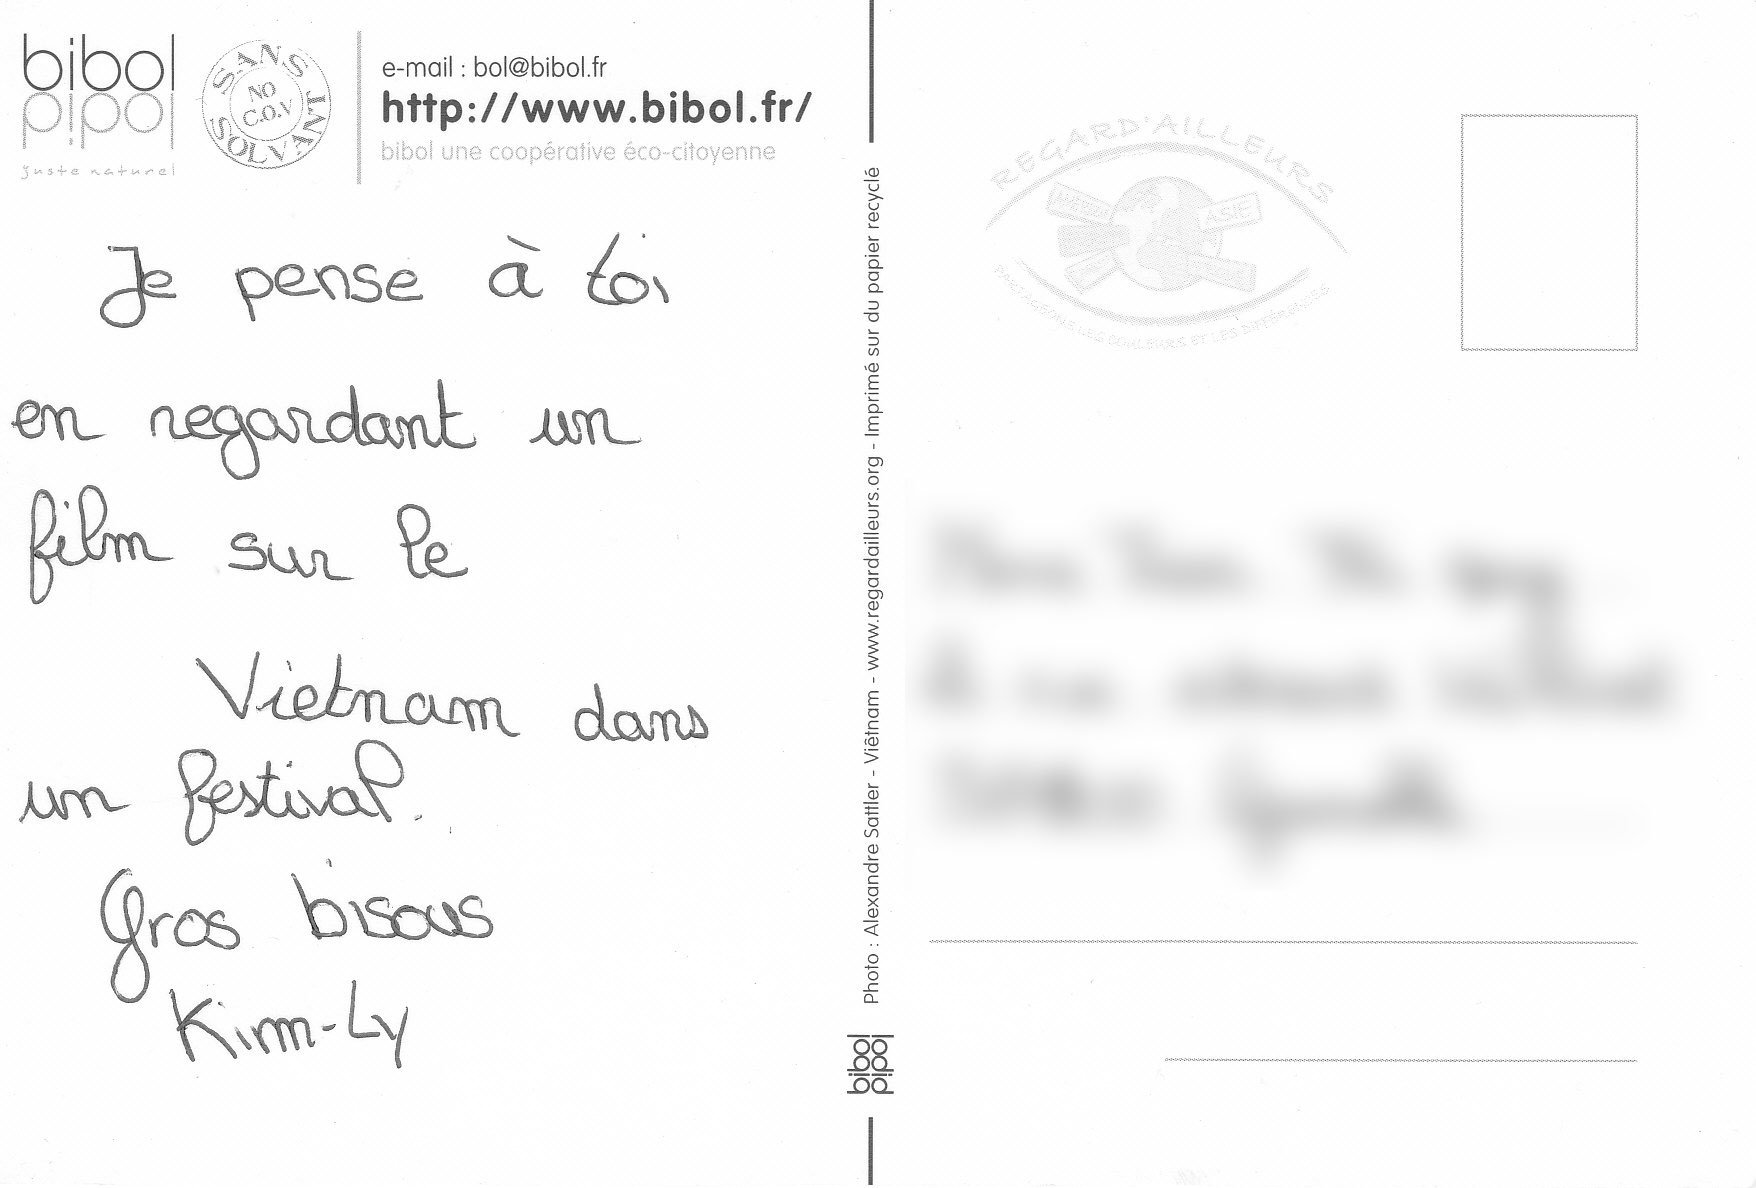 bibol
juste naturel
SANS SOLVANT
NO
C.O.V
e-mail : bol@bibol.fr
http://www.bibol.fr/
bibol une coopérative éco-citoyenne
Je pense à toi
en regardant un
film sur le
Vietnam dans
un festival.
Gros bisous
Kim-Ly
Photo : Alexandre Sattler - Viêtnam - www.regardailleurs.org - Imprimé sur du papier recyclé
bibol
REGARD'AILLEURS
ASIE
LES COULEURS ET LES DIFFÉRENCES